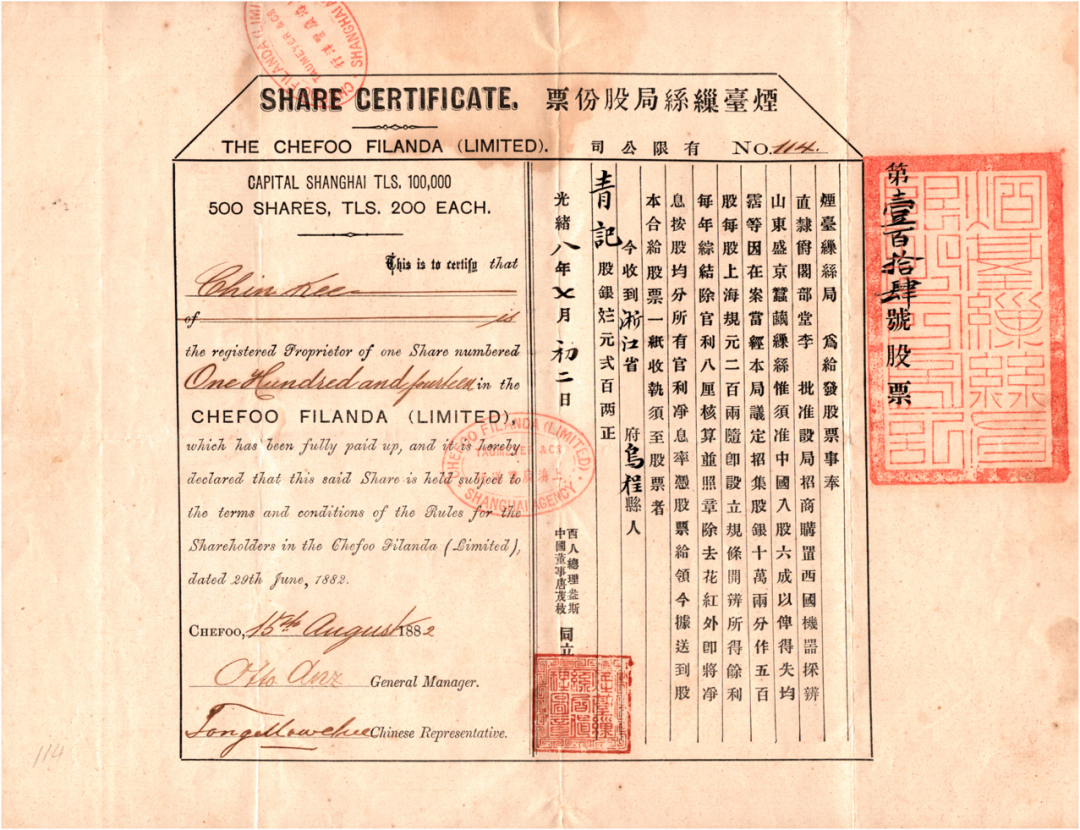 SHARE CERTIFICATE.
煙臺繅絲局股份票
THE CHEFOO FILANDA (LIMITED).
有限公司
No. 114.
CAPITAL SHANGHAI TLS. 100,000
500 SHARES, TLS. 200 EACH.
This is to certify that
Chin Kee
of is
the registered Proprietor of one Share numbered
One Hundred and fourteen in the
CHEFOO FILANDA (LIMITED),
which has been fully paid up, and it is hereby
declared that this said Share is held subject to
the terms and conditions of the Rules for the
Shareholders in the Chefoo Filanda (Limited),
dated 29th June, 1882.
CHEFOO, 15th August 1882
Otto Anz General Manager.
Tong Mow Chee Chinese Representative.
第壹百拾肆號股票
煙臺繅絲局 爲給發股票事奉
直隸爵閣部堂李 批准設局招商購置西國機器採辦
山東盛京蠶繭繅絲惟須准中國入股六成以俾得失均
霑等因在案當經本局議定招集股銀十萬兩分作五百
股每股上海規元二百兩隨卽設立規條開辦所得餘利
每年綜結除官利八厘核算並照章除去花紅外卽將凈
息按股均分所有官利凈息率憑股票給領今據送到股
本合給股票一紙收執須至股票者
今收到浙江省 府烏程縣人
青記 股銀 元弍百两正
光緒八年七月初二日
西人總理盎斯
中國董事唐茂枝
同立
CHEFOO FILANDA (LIMITED)
SHANGHAI AGENCY
114